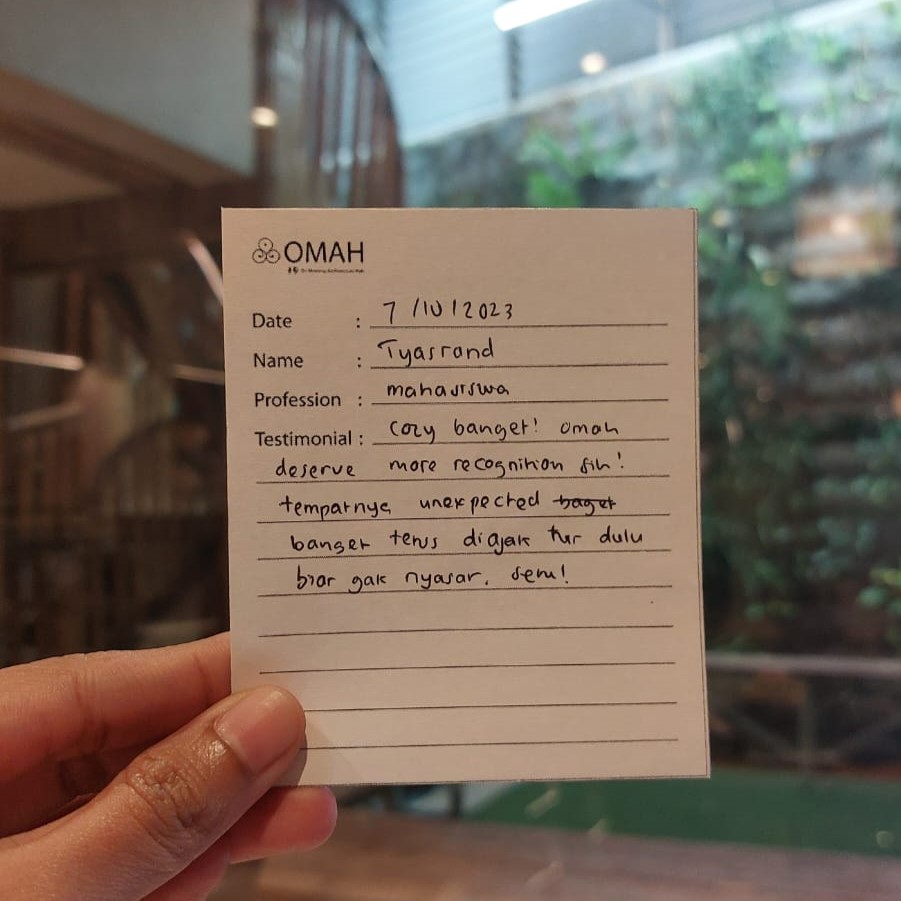 OMAH
Date : 7/10/2023
Name : Tyasrand
Profession : mahasiswa
Testimonial : Cozy banget! Omah
deserve more recognition sih!
tempatnya unexpected baget
banget terus diajak tur dulu
biar gak nyasar. Seru!